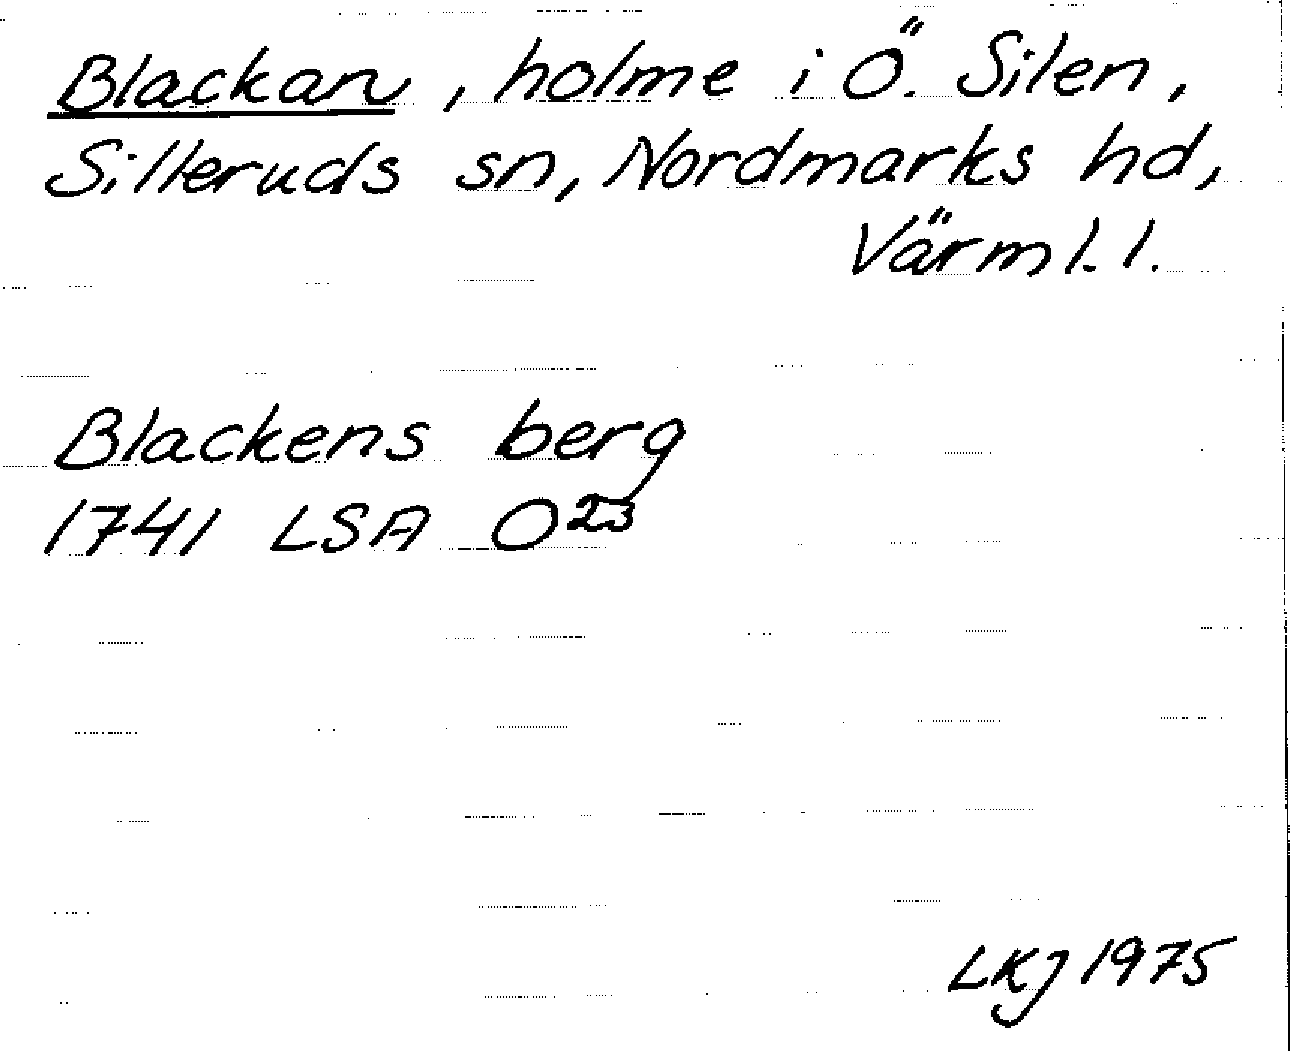 Blackan, holme i Ö. Silen,
Silleruds sn, Nordmarks hd,
Värml. l.
Blackens berg
1741 LSA O23
LKJ 1975